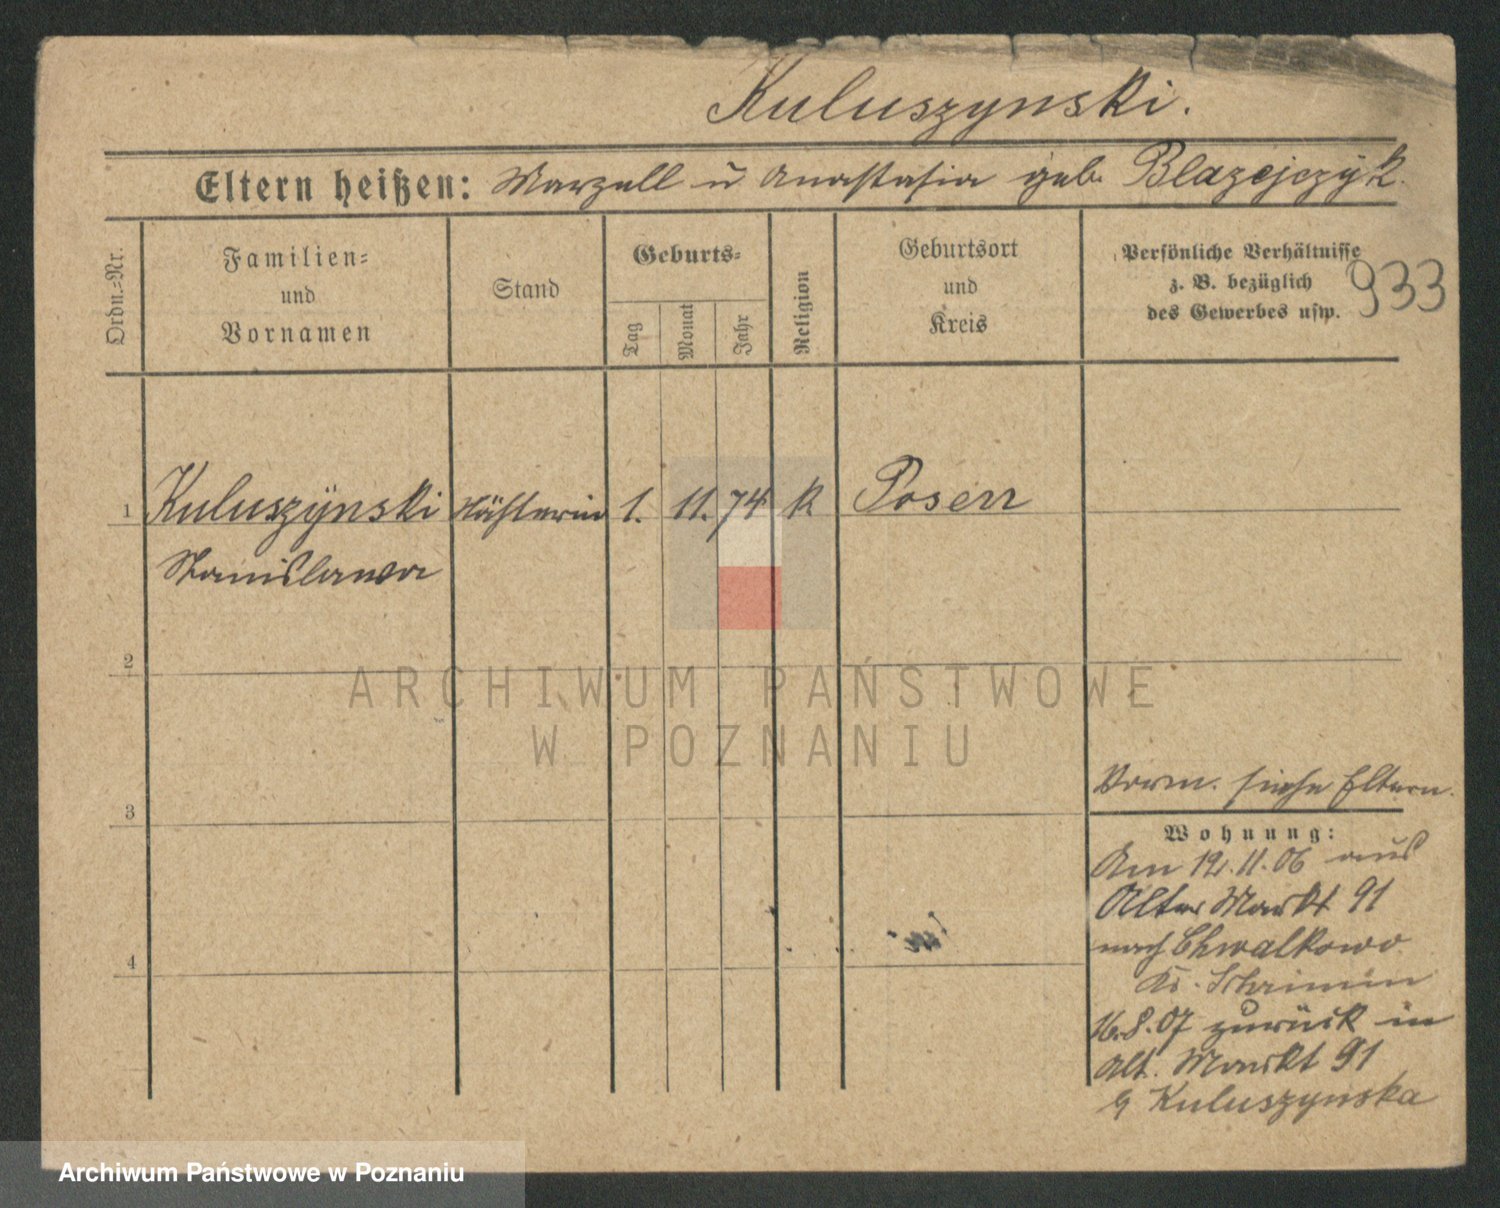 Kuluszynski.
Eltern heißen: Marzell u Anastasia geb. Blazejczyk.
Ordn.-Nr.
Familien-
und
Vornamen
Stand
Geburts-
Tag
Monat
Jahr
Religion
Geburtsort
und
Kreis
Persönliche Verhältnisse
z. B. bezüglich
des Gewerbes usw.
933
1 Kuluszynski 1. 11. 74 k Posen
Stanislawa
2
3
4
Vorm. siehe Eltern.
Wohnung:
Am 12.11.06 aus
Alter Markt 91
nach Chwalkowo
Kr. Schrimm
16.8.07 zurück in
Alt. Markt 91
Kuluszynska
ARCHIWUM PAŃSTWOWE
W POZNANIU
Archiwum Państwowe w Poznaniu